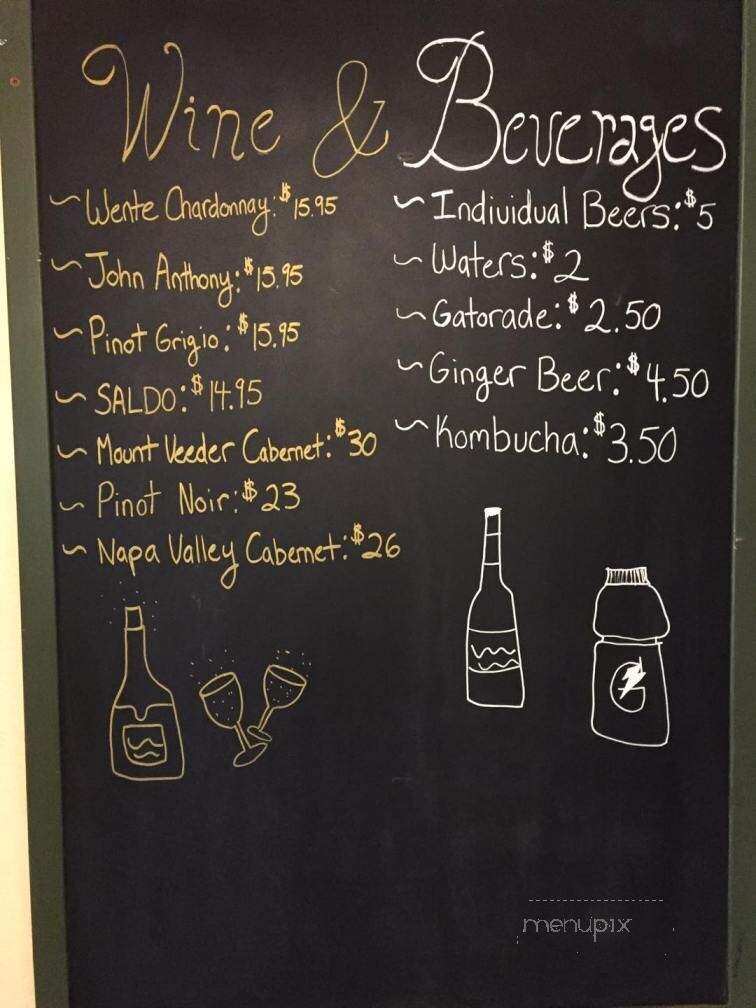 Wine & Beverages
~ Wente Chardonnay: $15.95
~ John Anthony: $15.95
~ Pinot Grigio: $15.95
~ SALDO: $14.95
~ Mount Veeder Cabernet: $30
~ Pinot Noir: $23
~ Napa Valley Cabernet: $26
~ Individual Beers: $5
~ Waters: $2
~ Gatorade: $2.50
~ Ginger Beer: $4.50
~ Kombucha: $3.50
G
menupix